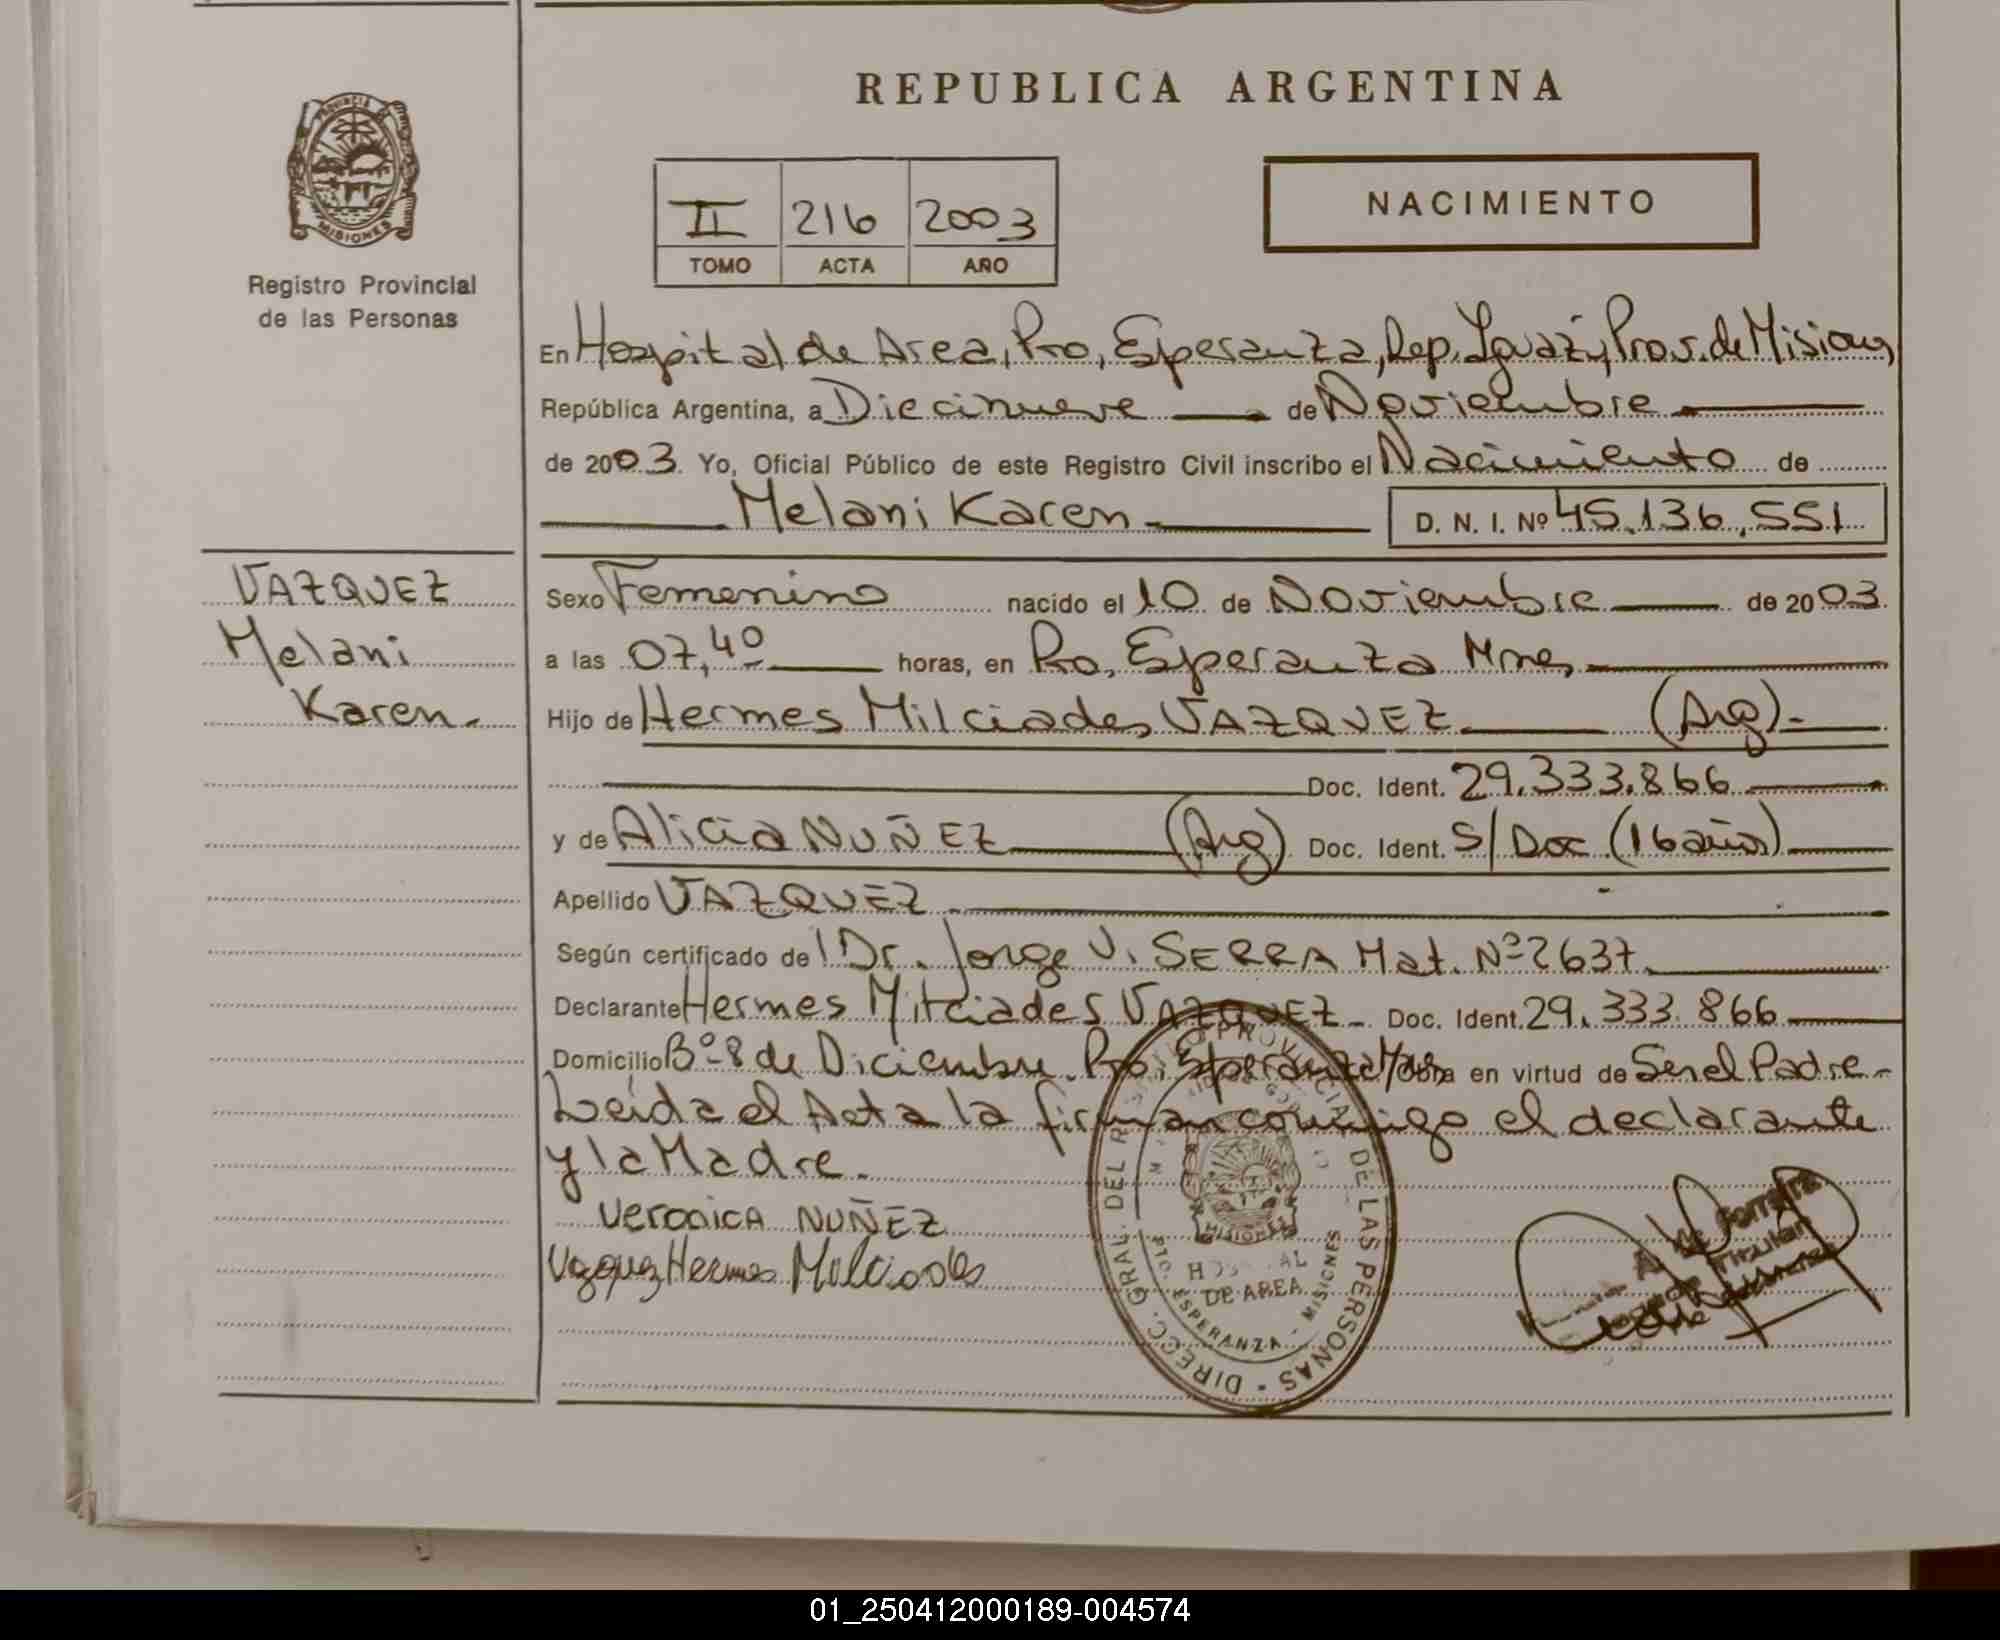 REPUBLICA ARGENTINA
PROVINCIA DE MISIONES
Registro Provincial
de las Personas
II 216 2003
TOMO ACTA AÑO
NACIMIENTO
En Hospital de Area, Pto, Esperanza, Dep. Iguazú, Prov. de Misiones,
República Argentina, a Diecinueve de Noviembre
de 2003. Yo, Oficial Público de este Registro Civil inscribo el Nacimiento de
Melani Karen D. N. I. Nº 45.136.551
VAZQUEZ
Melani
Karen.
Sexo Femenino nacido el 10 de Noviembre de 2003
a las 07,40 horas, en Pto, Esperanza Mnes,
Hijo de Hermes Milciades VAZQUEZ (Arg).-
Doc. Ident. 29.333.866
y de Alicia NUÑEZ (Arg) Doc. Ident. S/Doc (16 años)
Apellido VAZQUEZ
Según certificado del Dr. Jorge V. SERRA Mat. Nº 2637
Declarante Hermes Milciades VAZQUEZ - Doc. Ident. 29.333.866
Domicilio Bº 8 de Diciembre. Pto, Esperanza Mnes Obra en virtud de Ser el Padre-
Leída el Acta la firman conmigo el declarante
y la Madre.
Veronica NUÑEZ
Vazquez Hermes Milciades
DIRECC. GRAL. DEL REGISTRO PROVINCIAL DE LAS PERSONAS
MISIONES
HOSPITAL
DE AREA
PTO. ESPERANZA - MISIONES
Ferreira
Titular
01_250412000189-004574